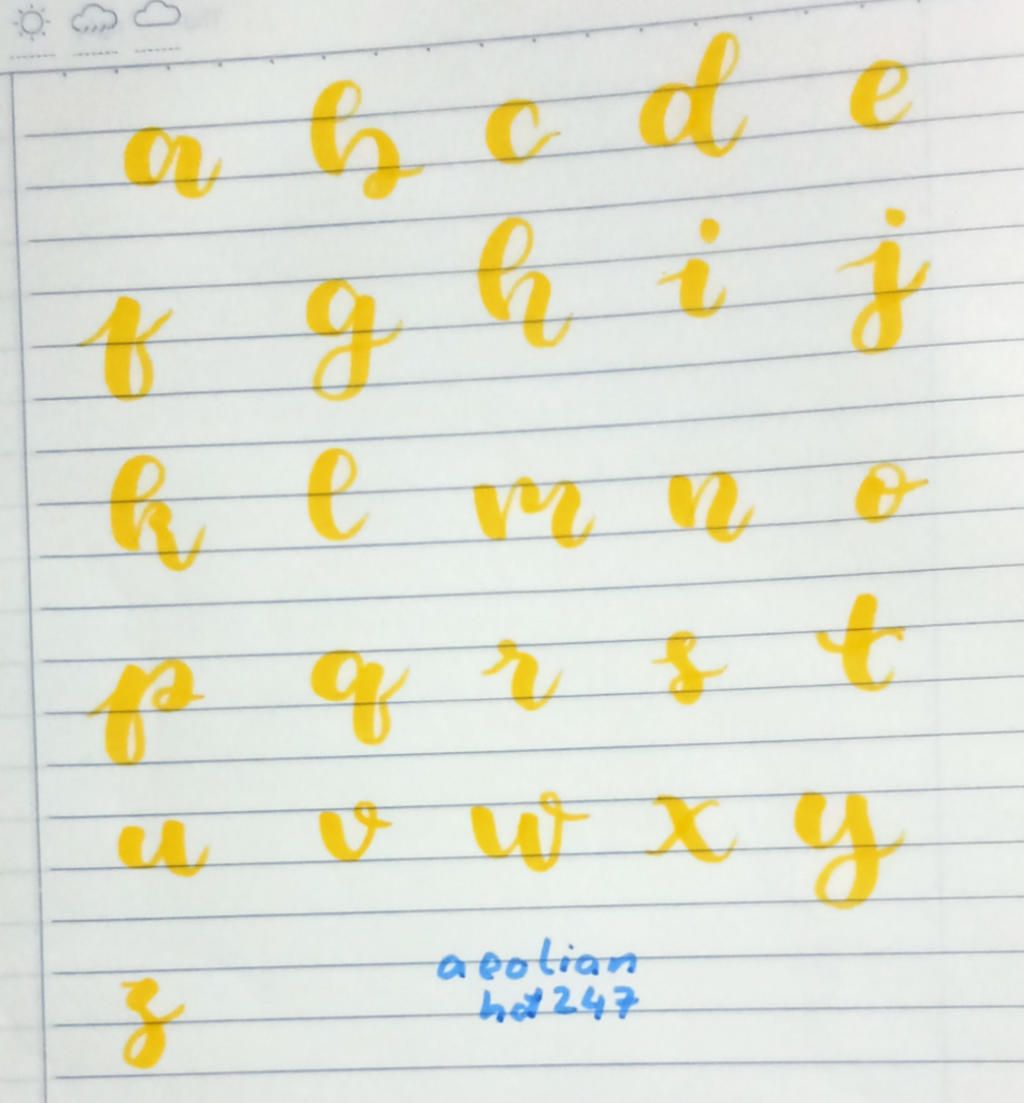 a b c d e
f g h i j
k l m n o
p q r s t
u v w x y
z
aeolian
hot247